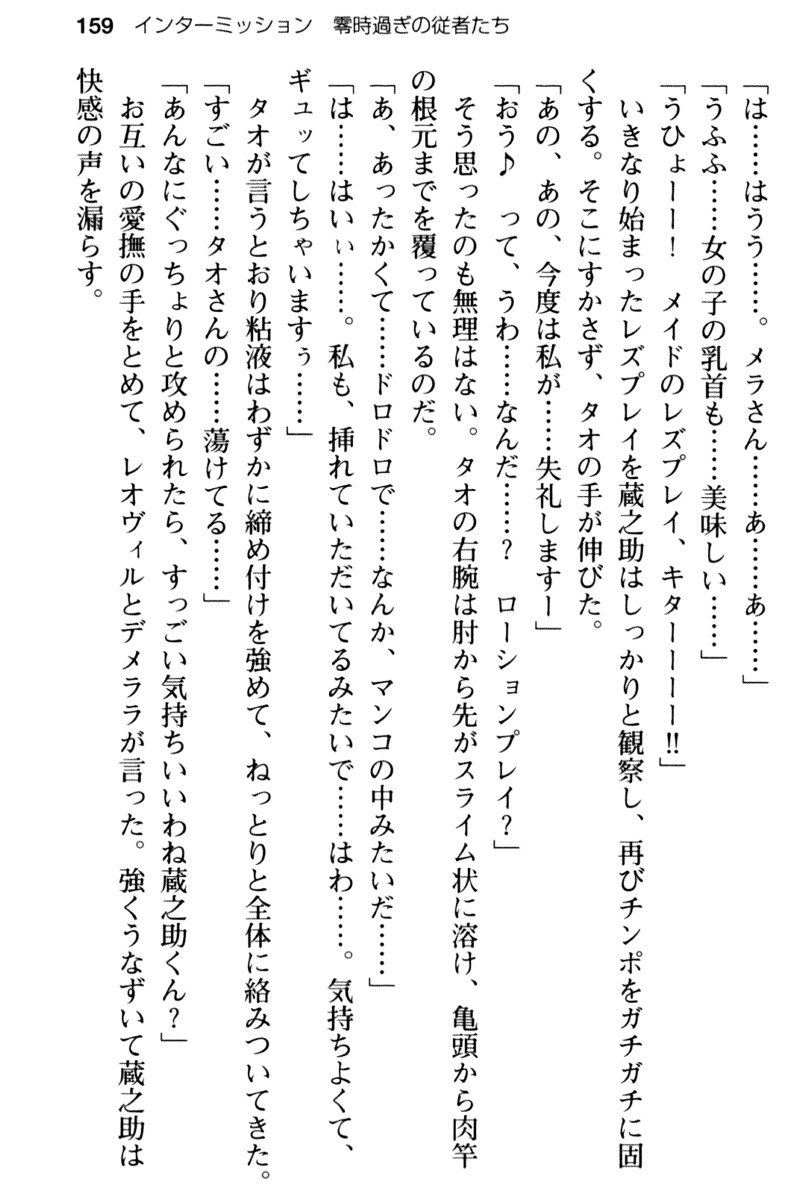 159 インターミッション 零時過ぎの従者たち
「は……はうう……。メラさん……あ……あ……」
「うふふ……女の子の乳首も……美味しい……」
「うひょーー! メイドのレズプレイ、キターーーー!!」
いきなり始まったレズプレイを蔵之助はしっかりと観察し、再びチンポをガチガチに固
くする。そこにすかさず、タオの手が伸びた。
「あの、あの、今度は私が……失礼しますー」
「おう♪ って、うわ……なんだ……? ローションプレイ?」
そう思ったのも無理はない。タオの右腕は肘から先がスライム状に溶け、亀頭から肉竿
の根元までを覆っているのだ。
「あ、あったかくて……ドロドロで……なんか、マンコの中みたいだ……」
「は……はいぃ……。私も、挿れていただいてるみたいで……はわ……。気持ちよくて、
ギュッてしちゃいますぅ……」
タオが言うとおり粘液はわずかに締め付けを強めて、ねっとりと全体に絡みついてきた。
「すごい……タオさんの……蕩けてる……」
「あんなにぐっちょりと攻められたら、すっごい気持ちいいわね蔵之助くん?」
お互いの愛撫の手をとめて、レオヴィルとデメララが言った。強くうなずいて蔵之助は
快感の声を漏らす。